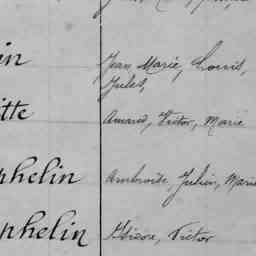 in Jean Marie, Louis,
Jules,
itte Amand, Victor, Marie
phelin Ambroise, Julien, Marie
phelin Victor